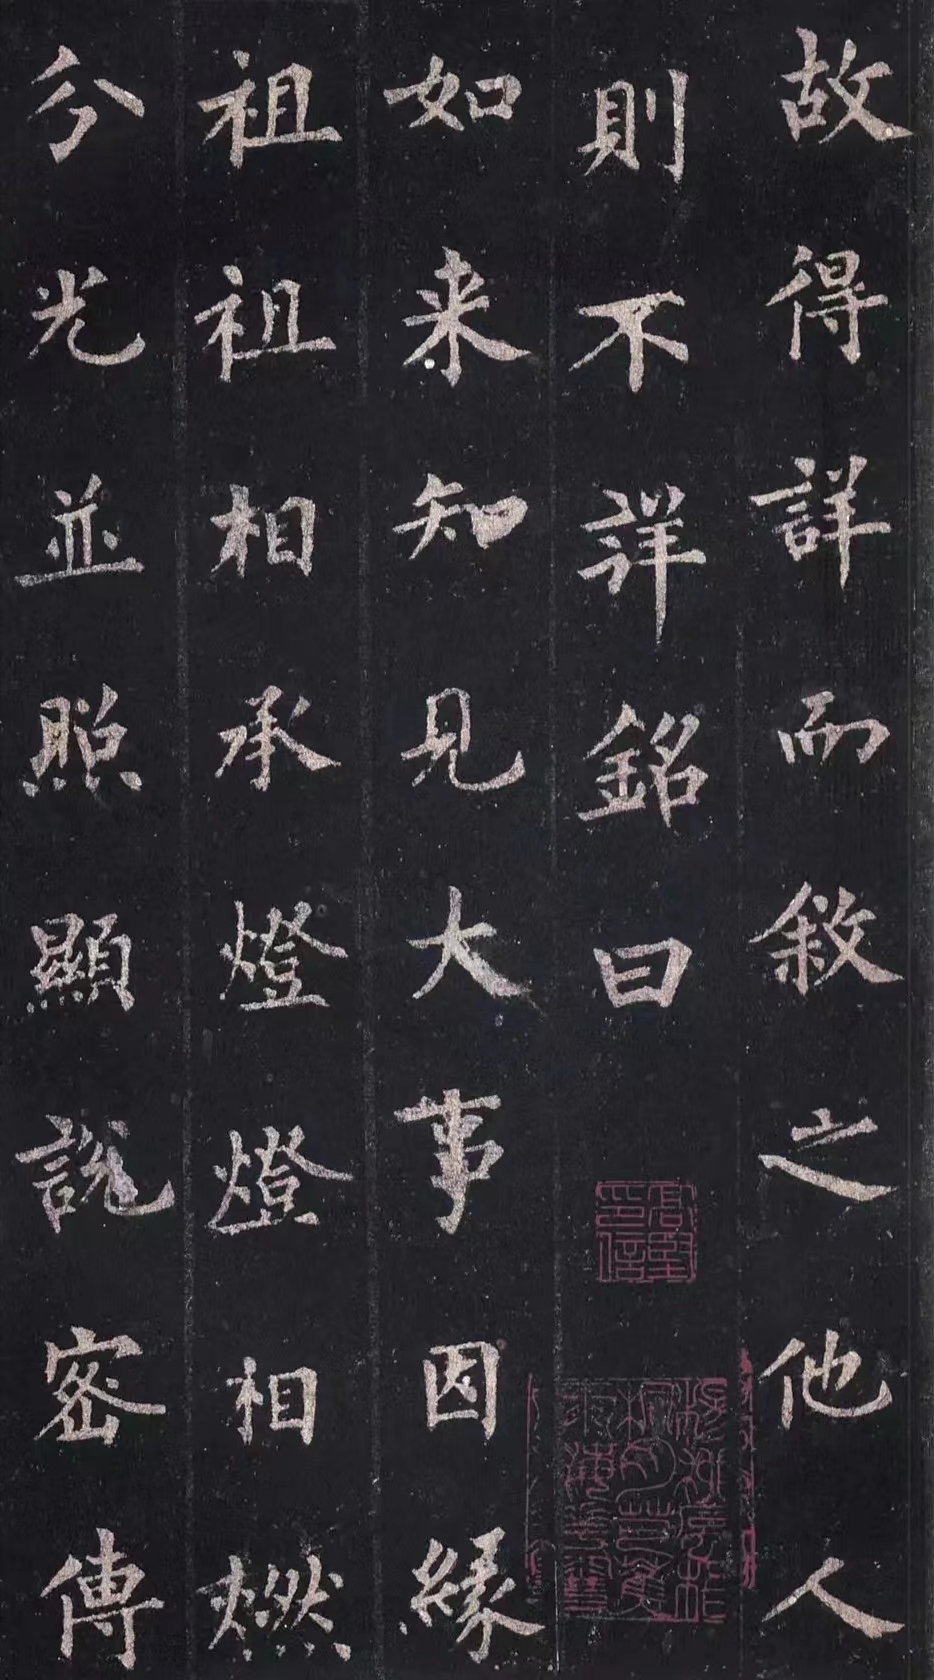 故得詳而敘之他人
則不詳銘曰
如来知見大事因緣
祖祖相承燈燈相燃
分光並照顯說密傳